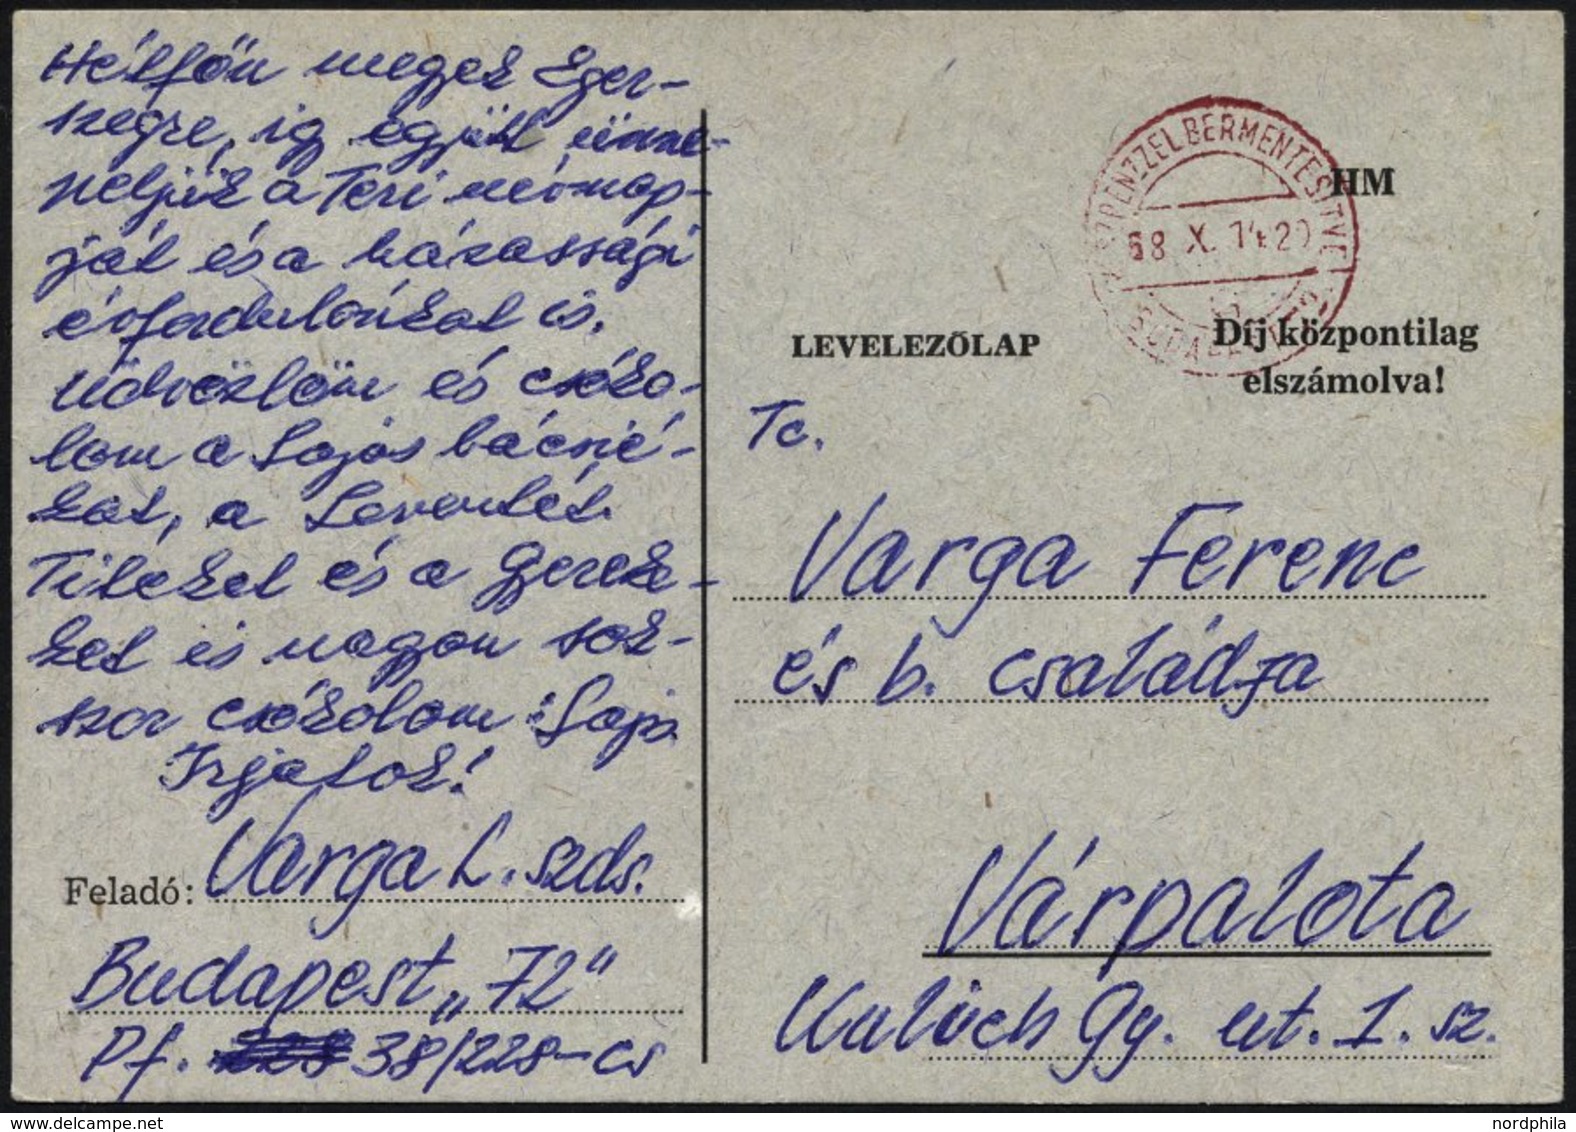 Hétfőn megyek Eger-
szegre, így együtt ünne-
peljük a Teri névnap-
ját és a házassági
évfordulónkat is.
Üdvözlöm és csóko-
lom a Lajos bácsié-
kat, a Leventét.
Titeket és a gyerek-
ket is nagyon sok-
szor csókolom: Lajos
Írjatok!
Feladó: Varga L. szds.
Budapest „72"
Pf. 38/228-cs
KÉSZPÉNZZEL BÉRMENTESÍTVE
68 X. 14 20
BUDAPEST
HM
LEVELEZŐLAP
Díj központilag
elszámolva!
Tc.
Varga Ferenc
és b. családja
Várpalota
Kulich Gy. ut. 1. sz.
www.delcampe.net
nordphila